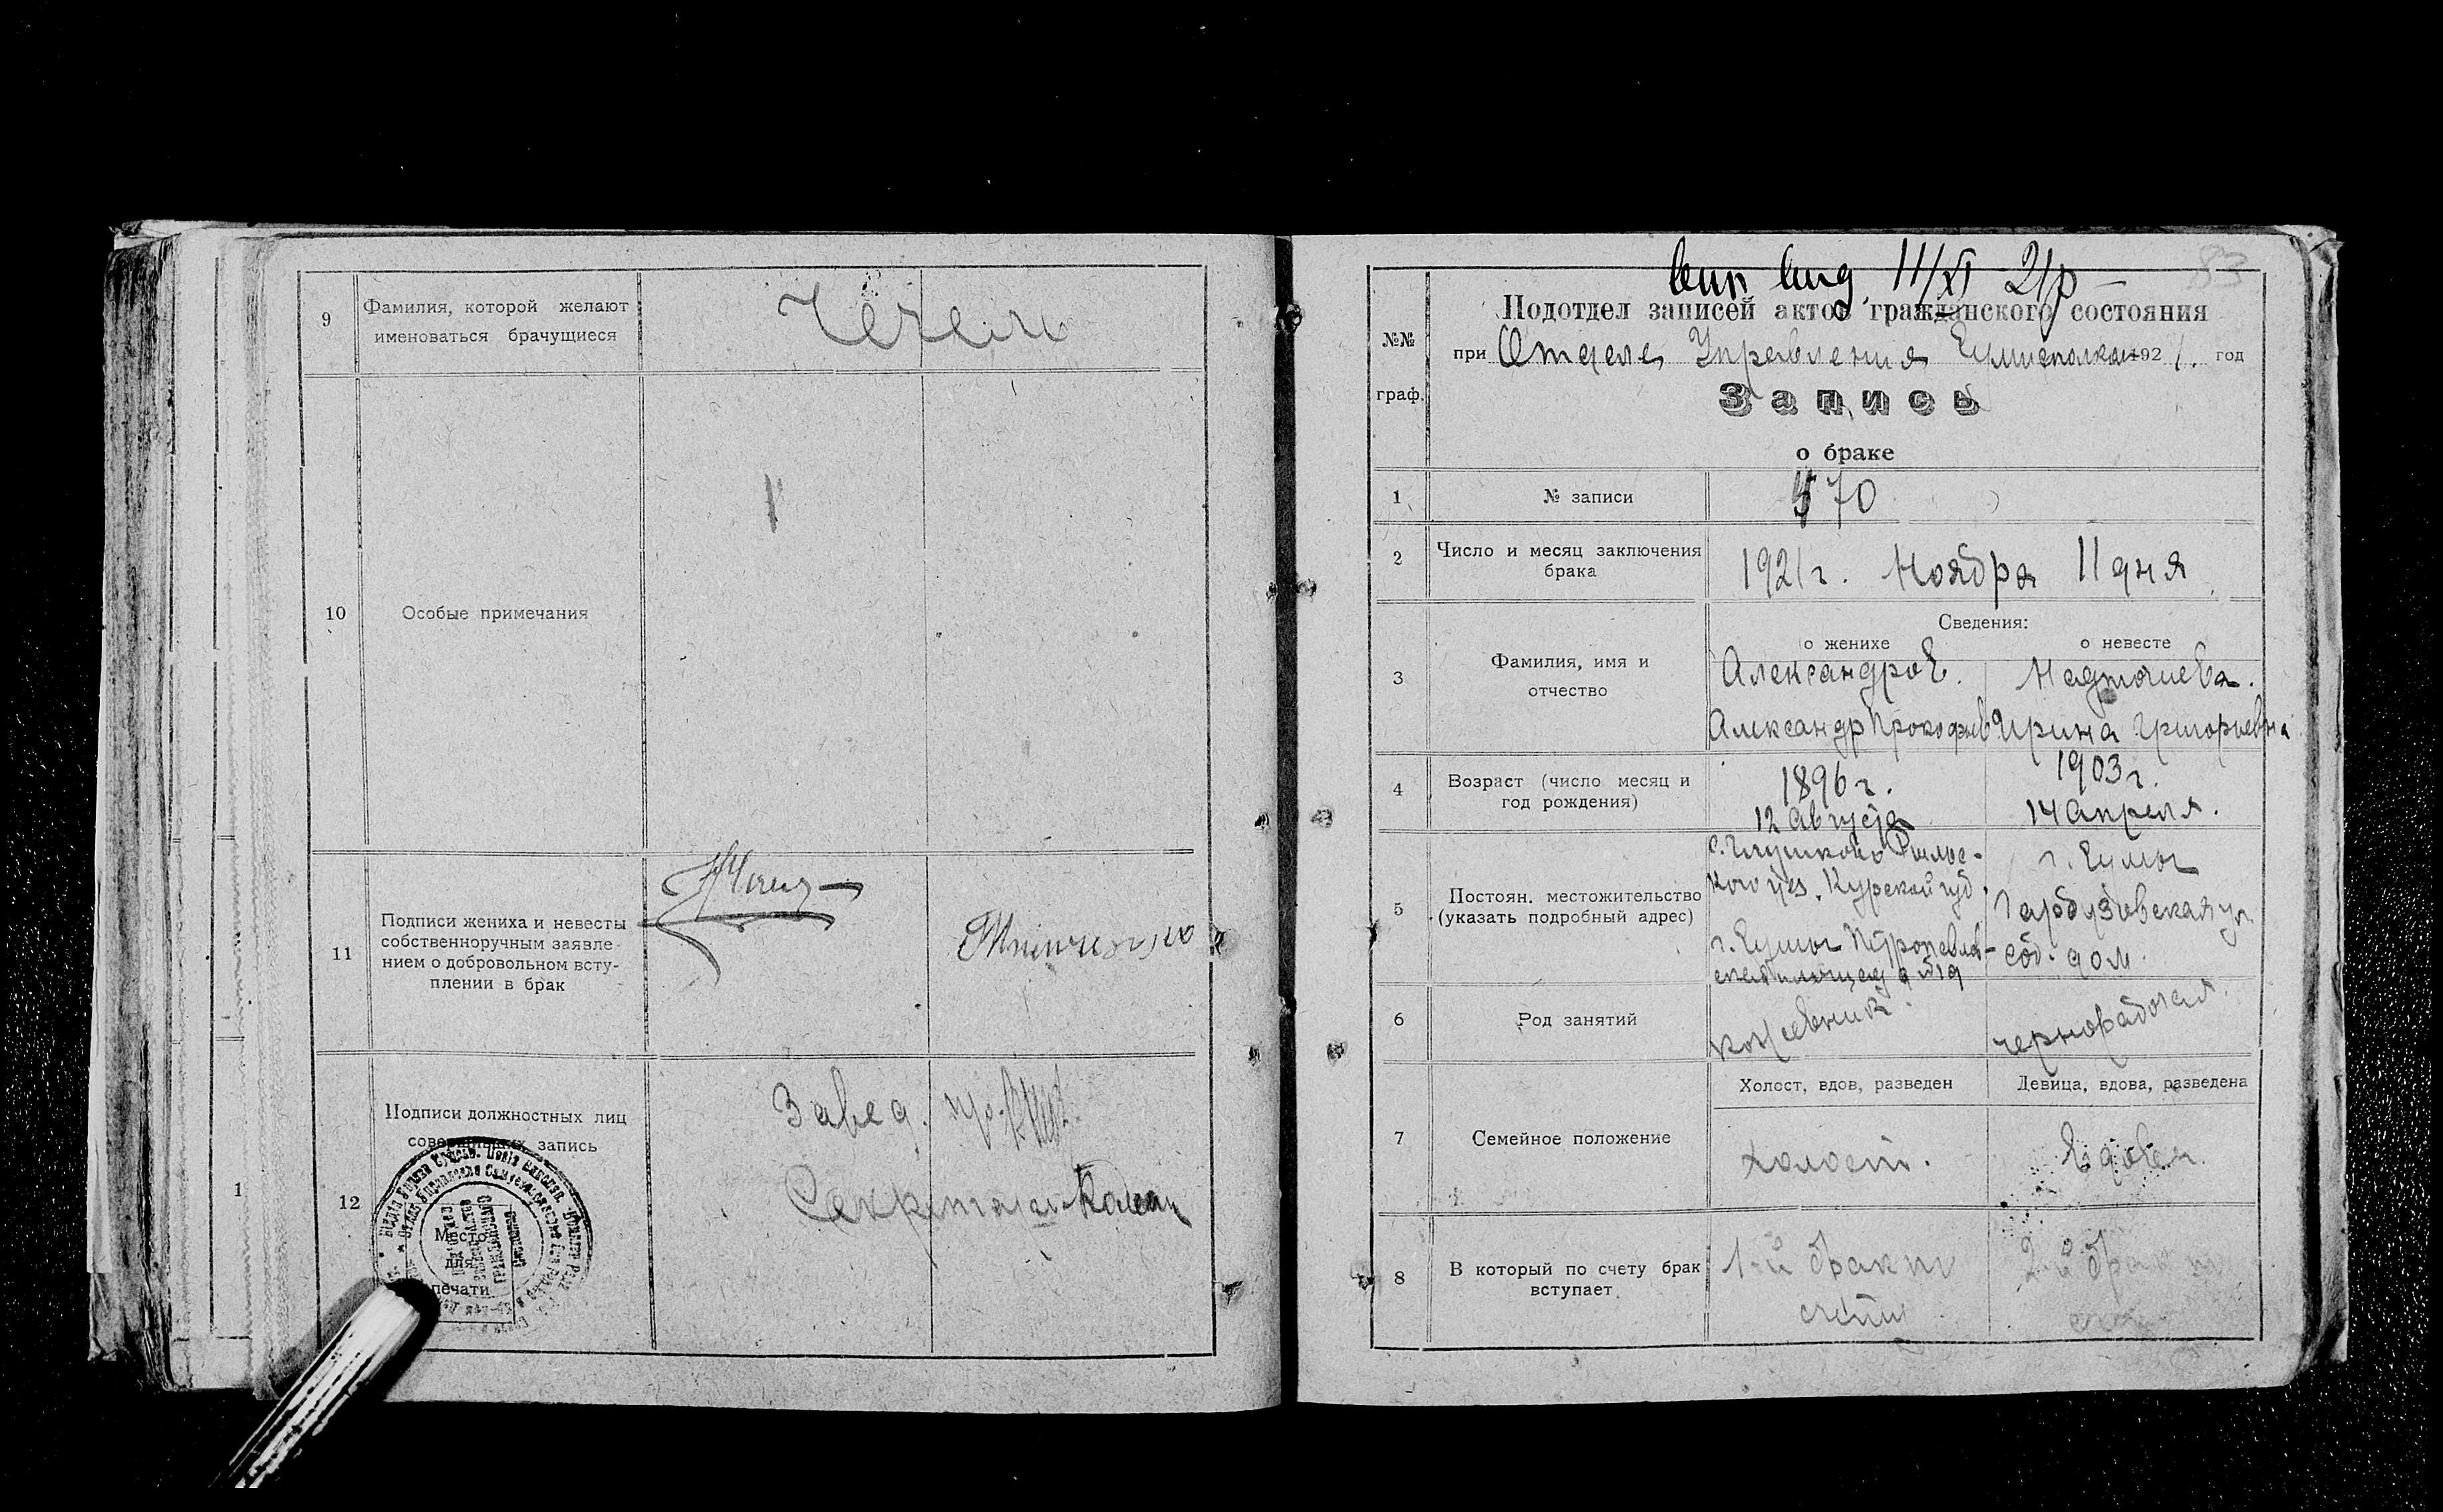 9
Фамилия, которой желают
именоваться брачущиеся
Чечель
10
Особые примечания
11
Подписи жениха и невесты
собственноручным заявле-
нием о добровольном всту-
плении в брак
12
Подписи должностных лиц
совершивших запись
Место
для
печати
Завед.
Секретарь
1
83
11/XI 21р
№№
граф.
Подотдел записей актов гражданского состояния
при Отделе Управления 1921. год
Запись
о браке
1
№ записи
570
2
Число и месяц заключения
брака
1921 г. Ноября 11 дня
Сведения:
о женихе
о невесте
3
Фамилия, имя и
отчество
Александров.
Александр Прокофьев
Ирина Григорьевна
4
Возраст (число месяц и
год рождения)
1896 г.
12 Августа
1903 г.
14 апреля.
5
Постоян. местожительство
(указать подробный адрес)
с. Глушково Рыльс-
кого уез. Курской губ.
г. Сумы
г. Сумы
Гарбузовская ул.
соб. дом.
6
Род занятий
кожевник
чернорабочая.
7
Семейное положение
Холост, вдов, разведен
Девица, вдова, разведена
холост.
Вдова.
8
В который по счету брак
вступает
1-й брак по
счету
2-й брак по